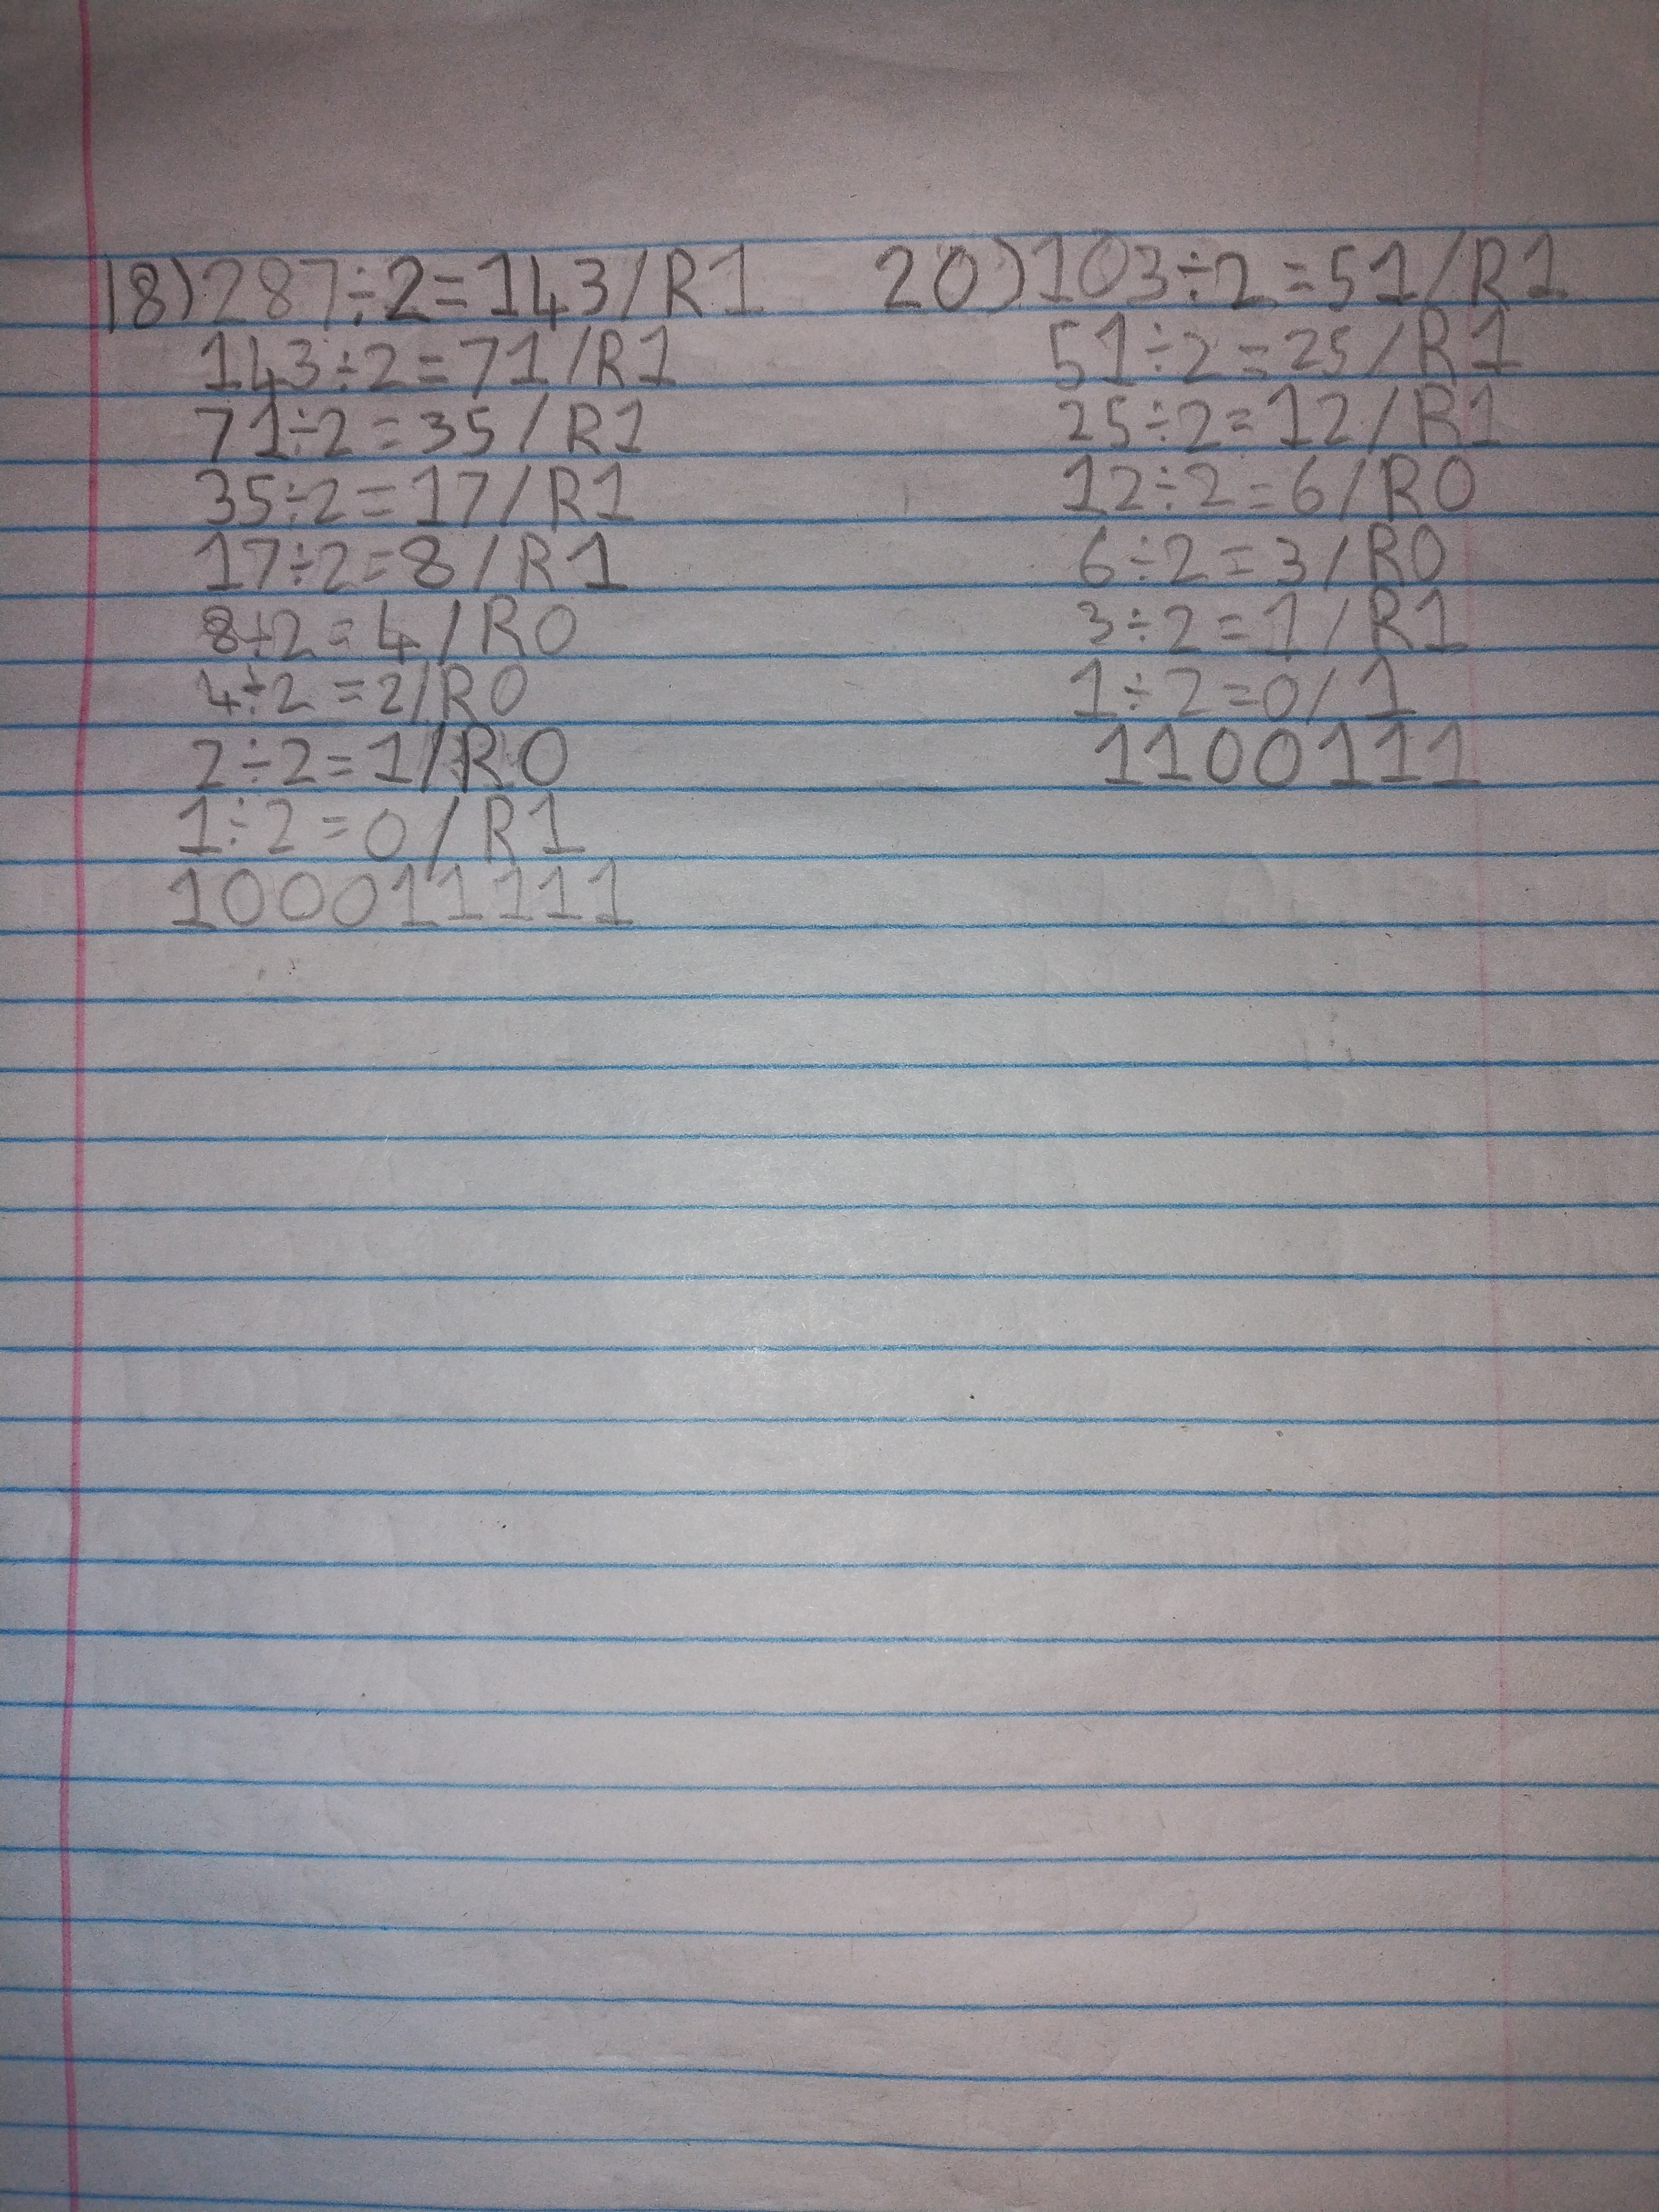 18) 287÷2=143/R1
143÷2=71/R1
71÷2=35/R1
35÷2=17/R1
17÷2=8/R1
8÷2=4/R0
4÷2=2/R0
2÷2=1/R0
1÷2=0/R1
100011111
20) 103÷2=51/R1
51÷2=25/R1
25÷2=12/R1
12÷2=6/R0
6÷2=3/R0
3÷2=1/R1
1÷2=0/1
1100111